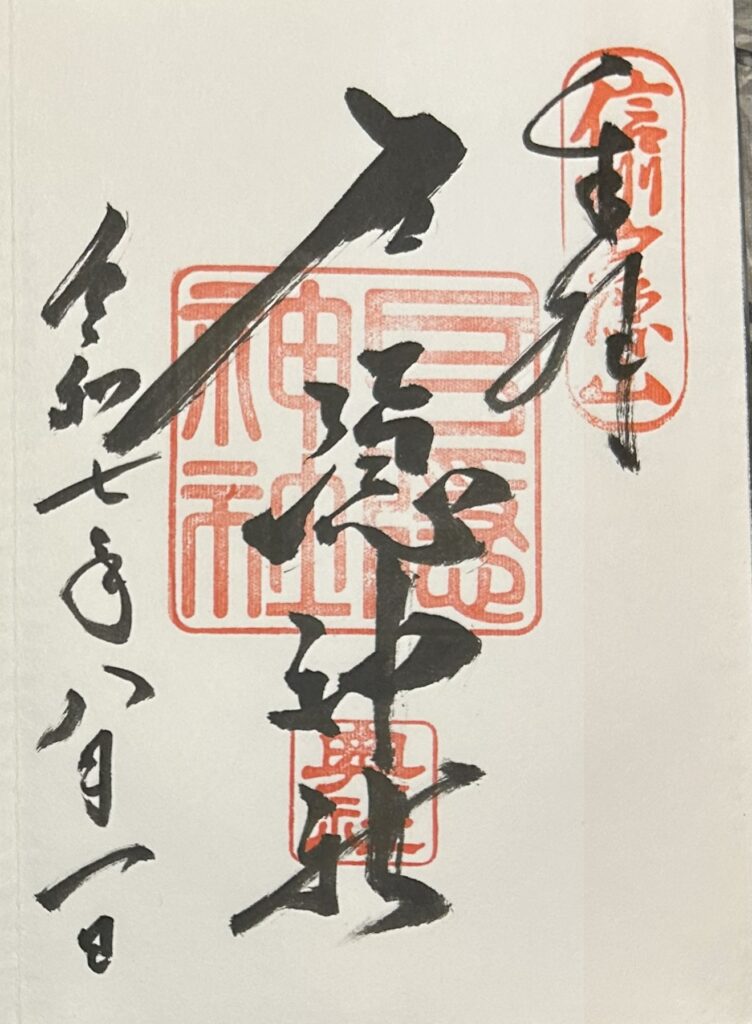 信州戸隠山
奉拝
戸隠神社
戸隠神社
奥社
令和七年八月一日